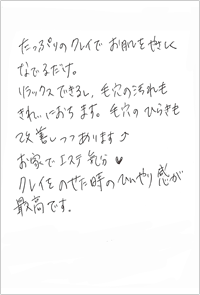 たっぷりのクレイでお肌をやさしく
なでるだけ。
リラックスできるし、毛穴の汚れも
きれいにおちます。毛穴のひらきも
改善しつつあります♪
お家でエステ気分♥
クレイをのせた時のひんやり感が
最高です。